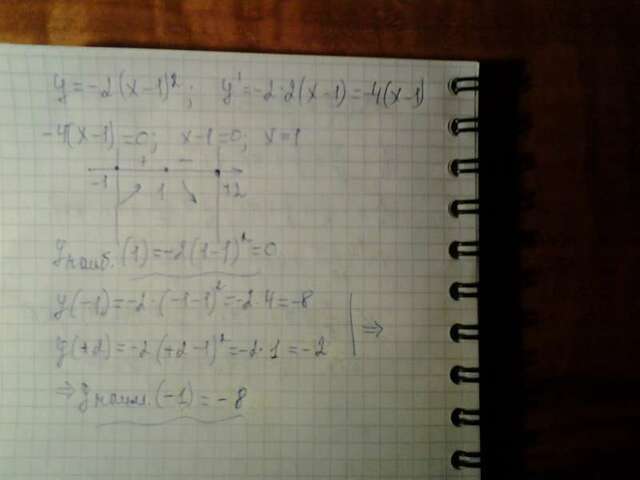 y = -2(x-1)²; y' = -2·2(x-1) = -4(x-1)
-4(x-1) = 0; x-1 = 0; x = 1
+ -
-1 1 +2
y наиб. (1) = -2(1-1)² = 0
y(-1) = -2·(-1-1)² = -2·4 = -8
y(+2) = -2(+2-1)² = -2·1 = -2 | ⇒
⇒ y наим. (-1) = -8